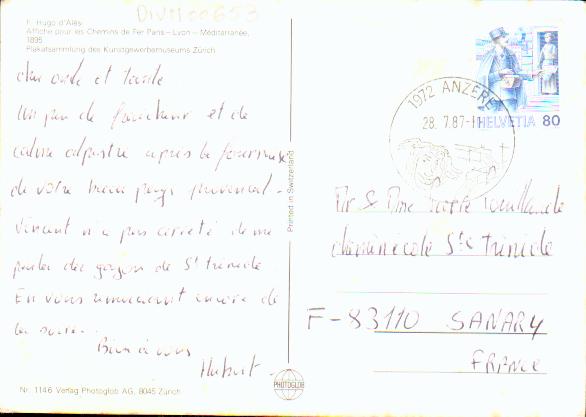 DIVM00653
F. Hugo d'Alési
Affiche pour les Chemins de Fer Paris–Lyon–Méditerranée,
1895
Plakatsammlung des Kunstgewerbemuseums Zürich
cher oncle et tante
Un peu de fraicheur et de
calme alpestre après la fournaise
de votre beau pays provençal.
Vincent n'a pas arrêté de me
parler des gazons de St trinide
En vous remerciant encore de
la soirée..
Bien à vous
Hubert.
Nr. 1146 Verlag Photoglob AG, 8045 Zürich
Printed in Switzerland
PHOTOGLOB
1972 ANZERE
28.7.87-
HELVETIA 80
Mr & Mme
chemin ecole Ste trinide
F-83110 SANARY
FRANCE